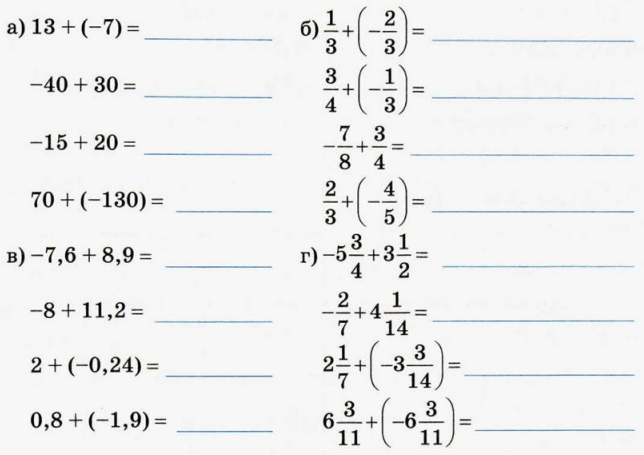 а) 13 + (−7) =
−40 + 30 =
−15 + 20 =
70 + (−130) =
б) 1/3 + (−2/3) =
3/4 + (−1/3) =
−7/8 + 3/4 =
2/3 + (−4/5) =
в) −7,6 + 8,9 =
−8 + 11,2 =
2 + (−0,24) =
0,8 + (−1,9) =
г) −5 3/4 + 3 1/2 =
−2/7 + 4 1/14 =
2 1/7 + (−3 3/14) =
6 3/11 + (−6 3/11) =